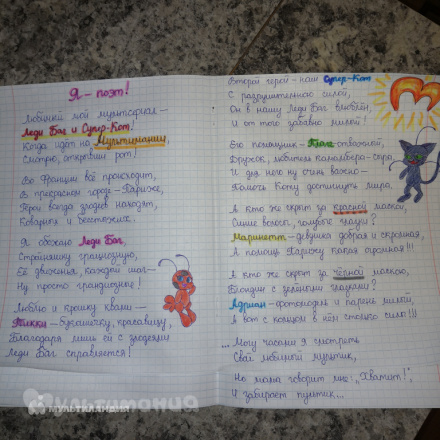 Я - поэт!
Любимый мой мультсериал -
Леди Баг и Супер-Кот!
Когда идёт на Мультимании,
Смотрю, открывши рот!
Во Франции всё происходит,
В прекрасном городе - Париже,
Герои всегда злодеев находят,
Коварных и бесстыжих.
Я обожаю Леди Баг,
Стройняшку грациозную,
Её движения, каждый шаг -
Ну просто грандиозные!
Люблю и крошку квами -
Тикки - букашечку, красавицу,
Благодаря лишь ей с злодеями
Леди Баг справляется!
Второй герой - наш Супер-Кот
С разрушительною силой,
Он в нашу Леди Баг влюблён,
И от того забавно милый!
Его помощник - Плагг отважный,
Дружок, любитель камамбера - сыра,
И для него ну очень важно -
Помочь Коту достигнуть мира.
А кто же скрыт за красной маской,
Синие волосы, голубые глазки?
Маринетт - девушка добрая и скромная,
А помощь Парижу какая огромная!!!
А кто же скрыт за чёрной маскою,
Блондин с зелёными глазками?
Адриан - фотомодель и парень милый,
А вот с кольцом в нём столько силы!!!
...Могу часами я смотреть
Свой любимый мультик,
Но мама говорит мне: "Хватит!",
И забирает пультик...
Мультимания
МУЛЬТЛАНДИЯ